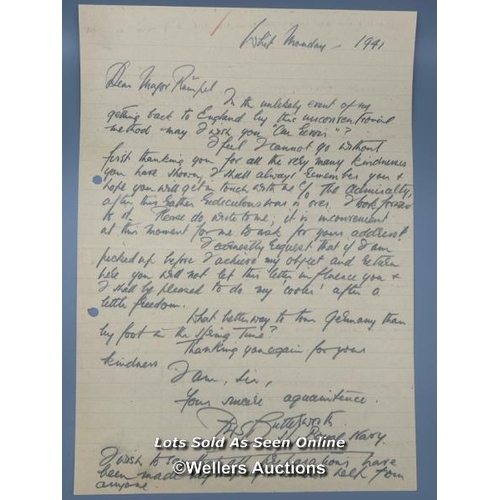 Whit Monday - 1941
Dear Major Rumpel
In the unlikely event of my
getting back to England by this unconventional
method - may I wish you "Au Revoir"?
I feel I cannot go without
first thanking you for all the very many kindnesses
you have shown, I shall always remember you &
hope you will get in touch with me c/o The Admiralty,
after this rather ridiculous war is over. I look forward
to it. Please do write to me; it is inconvenient
at this moment for me to ask for your address!
I earnestly request that if I am
picked up before I achieve my object and return
here you will not let this letter influence you &
I shall be pleased to do my 'cooler' after a
little freedom.
What better way to tour Germany than
by foot in the Spring Time?
Thanking you again for your
kindness
I am, Sir,
Your sincere aquaintence.
Butterworth
Royal Navy.
I wish to say that all preparations have
been made by help from
anyone
Lots Sold As Seen Online
©Wellers Auctions